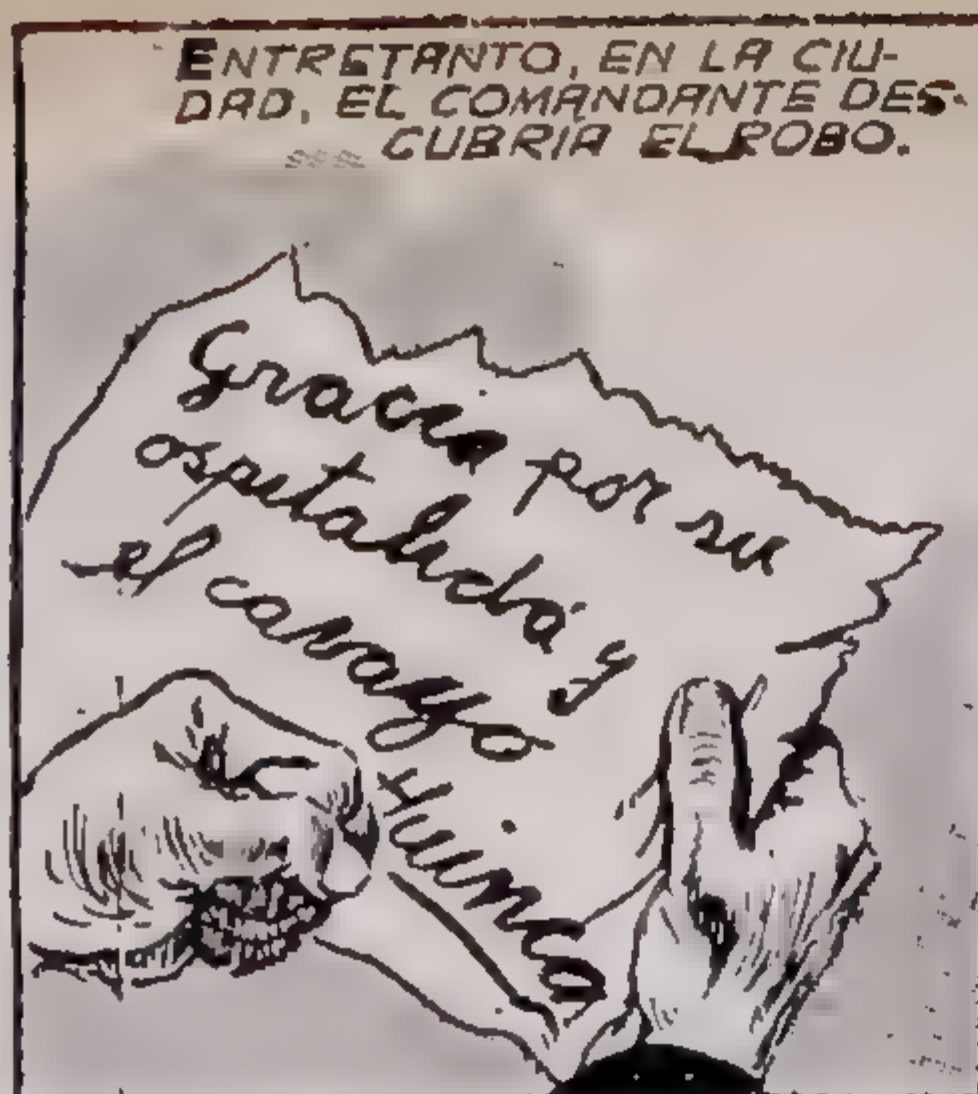 ENTRETANTO, EN LA CIU-
DAD, EL COMANDANTE DES-
CUBRIA EL ROBO.
Gracia por su
ospitalidá y
el cavayo
Huinca